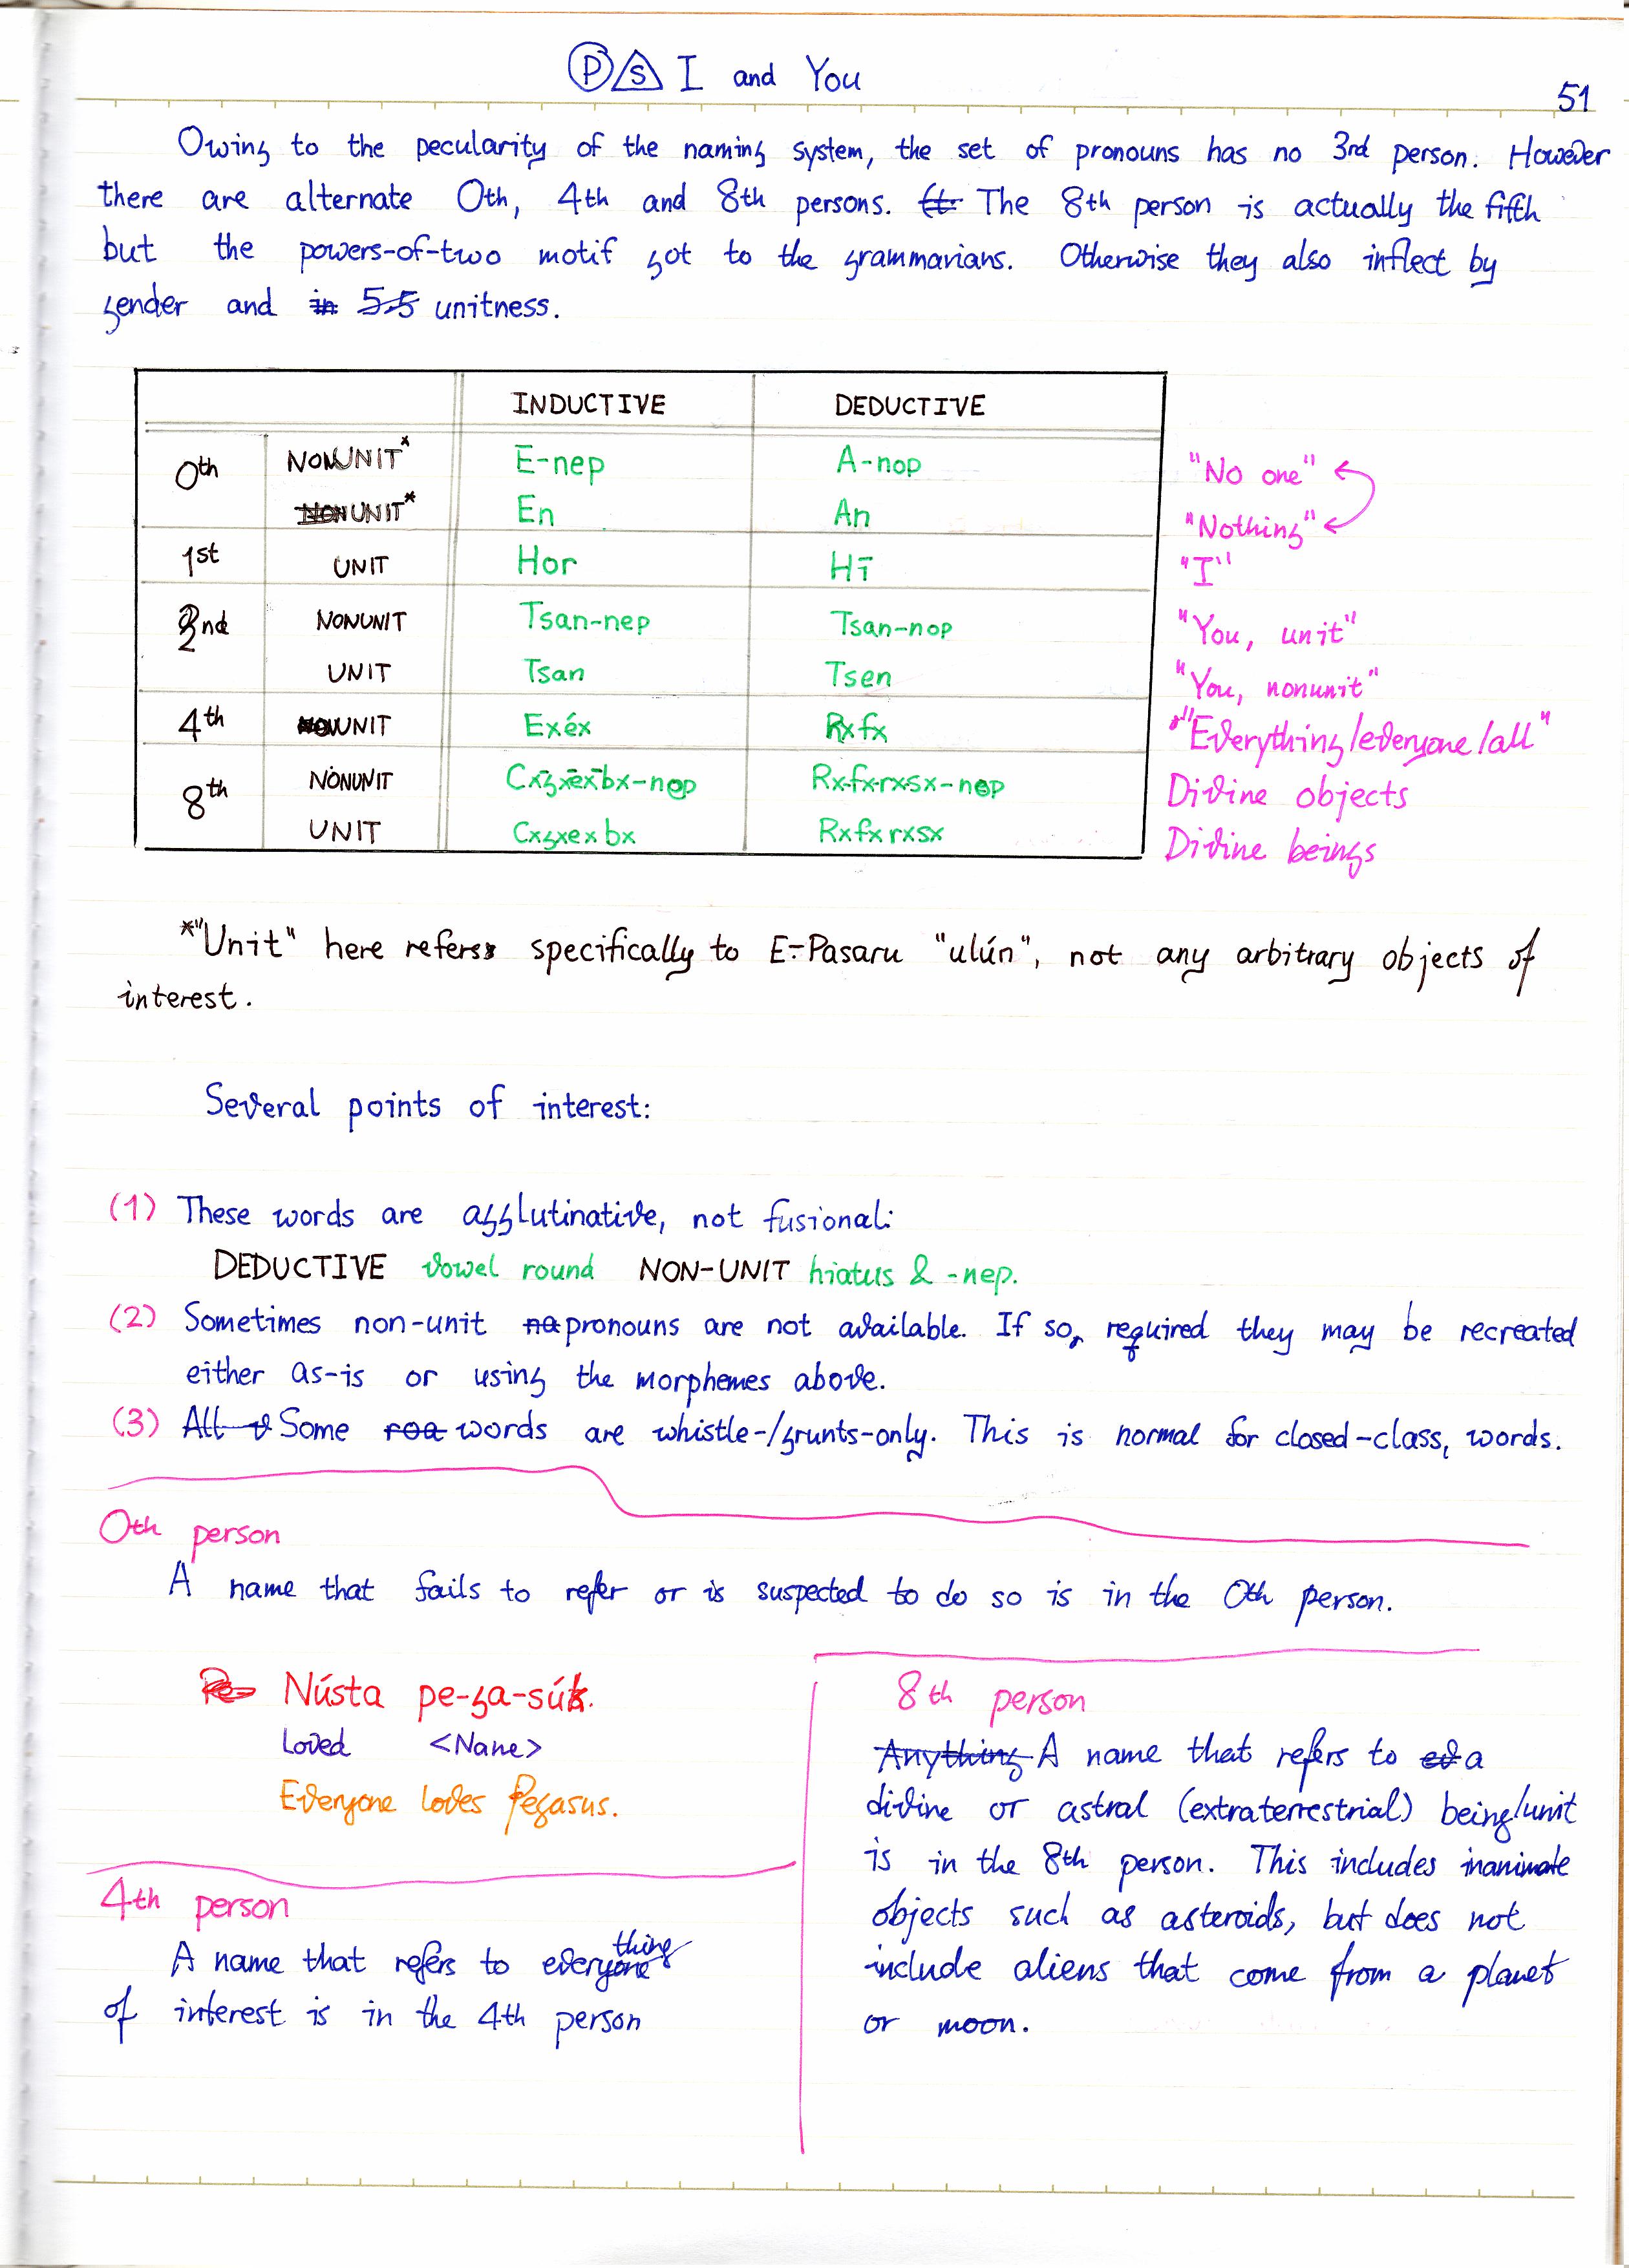 P S I and You
51
Owing to the pecularity of the naming system, the set of pronouns has no 3rd person. However
there are alternate 0th, 4th and 8th persons. The 8th person is actually the fifth
but the powers-of-two motif got to the grammarians. Otherwise they also inflect by
gender and in 5.5 unitness.
INDUCTIVE DEDUCTIVE
0th NONUNIT* E-nep A-nop "No one"
NONUNIT* En An "Nothing"
1st UNIT Hor Hī "I"
2nd NONUNIT Tsan-nep Tsan-nop "You, unit"
UNIT Tsan Tsen "You, nonunit"
4th UNIT Exéx Rxfx "Everything/everyone/all"
8th NONUNIT Cxgxexbx-nep Rxfxrxsx-nop Divine objects
UNIT Cxgxexbx Rxfxrxsx Divine beings
*"Unit" here refers specifically to E-Pasaru "ulún", not any arbitrary objects of
interest.
Several points of interest:
(1) These words are agglutinative, not fusional:
DEDUCTIVE vowel round NON-UNIT hiatus & -nep.
(2) Sometimes non-unit pronouns are not available. If so, required they may be recreated
either as-is or using the morphemes above.
(3) All Some words are whistle-/grunts-only. This is normal for closed-class, words.
0th person
A name that fails to refer or is suspected to do so is in the 0th person.
Nústa pe-ga-súk.
Loved <Name>
Everyone loves Pegasus.
4th person
A name that refers to everything
of interest is in the 4th person
8th person
Anything A name that refers to a
divine or astral (extraterrestrial) being/unit
is in the 8th person. This includes inanimate
objects such as asteroids, but does not
include aliens that come from a planet
or moon.